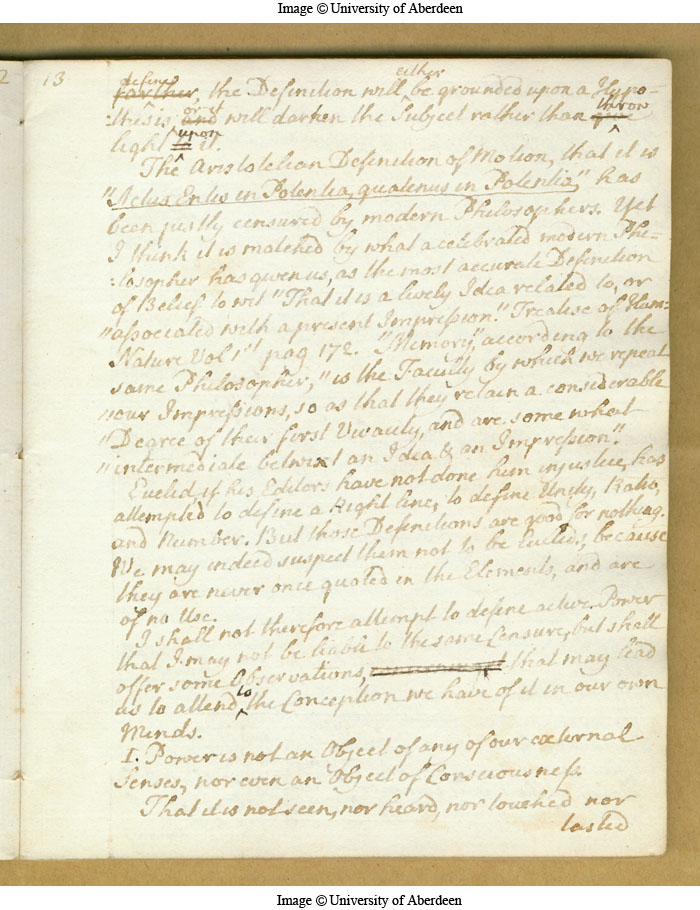 Image © University of Aberdeen
2 13
define either
farther, the Definition will be grounded upon a Hypo-
or it throw
:thesis and will darken the Subject rather than give
upon
light it.
The Aristotelian Definition of Motion, that it is
"Actus Entis in Potentia, quatenus in Potentia", has
been justly censured by modern Philosophers. Yet
I think it is matched by what a celebrated modern Phi-
:losopher has given us, as the most accurate Definition
of Belief, to wit "That it is a lively Idea related to, or
"associated with a present Impression." Treatise of Hum:
Nature Vol 1st pag 172. "Memory," according to the
same Philosopher, "is the Faculty by which we repeat
"our Impressions, so as that they retain a considerable
"Degree of their first Vivacity, and are some what
"intermediate betwixt an Idea & an Impression."
Euclid, if his Editors have not done him injustice, has
attempted to define a Right line, to define Unity, Ratio,
and Number. But those Definitions are good for nothing.
We may indeed suspect them not to be Euclids, because
they are never once quoted in the Elements, and are
of no Use.
I shall not therefore attempt to define active Power
that I may not be liable to the same Censure, but shall
offer some Observations, that may lead
to
us to attend the Conception we have of it in our own
Minds.
I. Power is not an Object of any of our external
Senses, nor even an Object of Consciousness.
That it is not seen, nor heard, nor touched nor
tasted
Image © University of Aberdeen